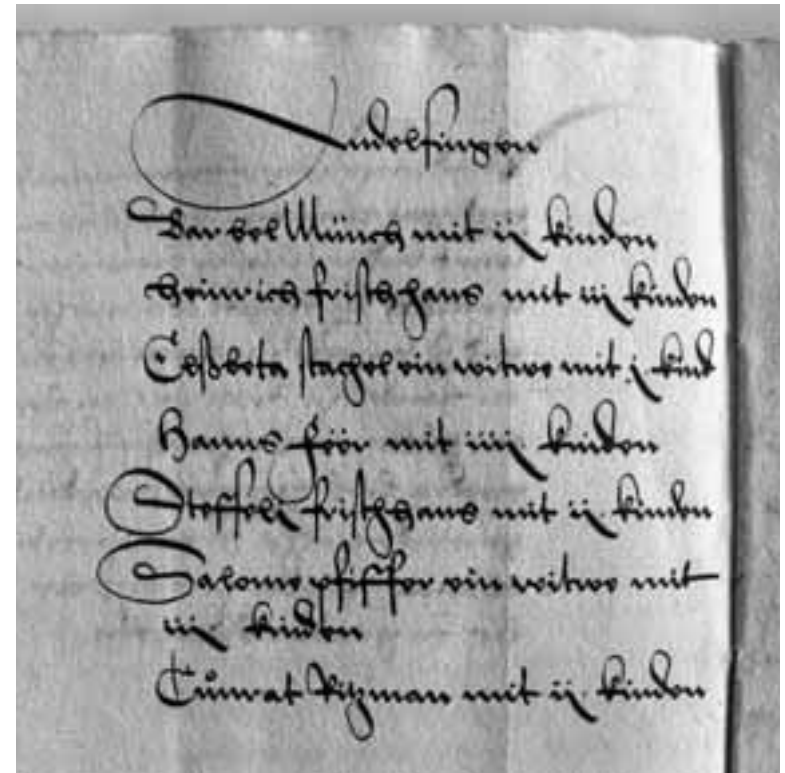 Andelfingen
Barbel Münch mit ij kinden
Heinrich frischhans mit iij kinden
Elsbeta stachel ein witwe mit j kind
Hanns mit iiij kinden
Steffeli frischhans mit ij kinden
Salome pfiffer ein witwe mit
iij kinden
Cůnrat Ritzman mit ij kinden